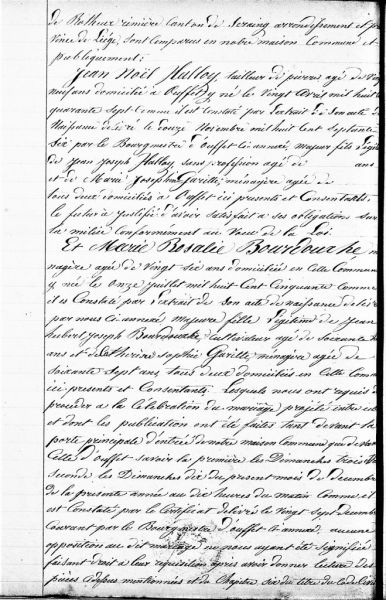 de Rotheux rimière Canton de Seraing arrondissement et pro
vince de Liège, sont comparus en notre maison Commune et
publiquement:
Jean Noël Halloy, tailleur de pierres, agé de Vingt
neuf ans domicilié à Ouffet, y né le Vingt Avril mil huit Cent
quarante Sept Comme il est Constaté par l'extrait de Son acte de
Naissance délivré le douze Novembre mil huit Cent Septante
Six par le Bourgmestre d'Ouffet Ci annexé, majeur fils légitime
de Jean Joseph Halloy, sans profession agé de ans
et de Marie Joseph Garitte, ménagère agée de
tous deux domiciliés à Ouffet ici présents et Consentants.
le futur a justifié d'avoir Satisfait à ses obligations sur
la milice Conformément au Vœu de la Loi.
Et Marie Rosalie Bourdouxhe, mé
nagère agée de Vingt Six ans domiciliée en Cette Commune
y née le Onze Juillet mil huit Cent Cinquante Comme
il es Constaté par l'extrait de Son acte de naissance délivré
par nous Ci annexé Majeure fille légitime de Jean
hubert Joseph Bourdouxhe, Cultivateur agé de Soixante
ans et de Catherine Sophie Garitte, ménagère agée de
Soixante Sept ans, tous deux domiciliés en Cette Commune
ici présents et Consentants. Lesquels nous ont requis de
procéder à la Célébration du mariage projeté entre eux
et dont les publication ont été faites tant devant la
porte principale d'entrée de notre maison Commune que de devant
Celle d'Ouffet savoir la première les Dimanches trois
seconde les Dimanches dix du présent mois de décembre
de la présente année au dix heures du matin Comme il
est Constaté par le Certificat délivré le Vingt Sept décembre
Courant par le Bourgmestre d'Ouffet Ci annexé, aucune
opposition au dit mariage ne nous ayant été Signifiée
faisant droit à leur réquisition après avoir donner lecture des
pièces Ci dessus mentionnées et du Chapitre Six du titre du Code Civil